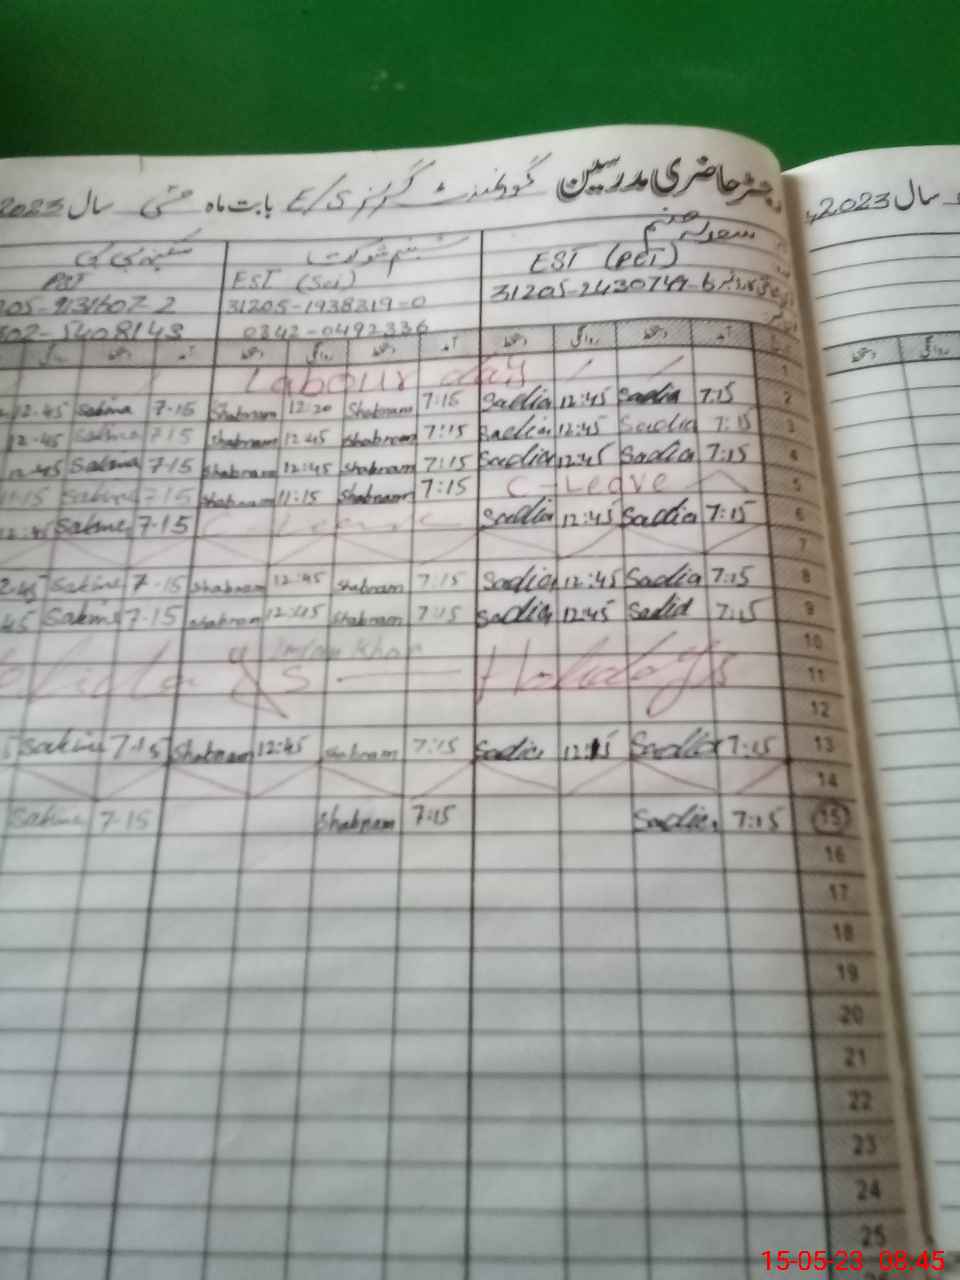 رجسٹر حاضری مدرسین گورنمنٹ گرلز بابت ماہ مئی سال 2023
سال 2023
سعدیہ
EST (PET)
31205-2430749-6
شبنم شوکت
EST (Sci)
31205-1938319-0
0342-0492336
سکینہ بی بی
PET
آمد دستخط روانگی دستخط آمد دستخط روانگی دستخط آمد دستخط روانگی
دستخط روانگی
1 Labour day
2 7:15 Sadia 12:45 Sadia 7:15 Shabnam 12:20 Shabnam 7-15 Sakina 12-45
3 7:15 Sadia 12:45 Sadia 7:15 Shabnam 12:45 Shabnam 7-15 Sakina 12-45
4 7:15 Sadia 12:45 Sadia 7:15 Shabnam 12:45 Shabnam 7-15 Sakina 12-45
5 C-Leave 7:15 Shabnam 11:15 Shabnam 7-15 Sakina 11-15
6 7:15 Sadia 12:45 Sadia C-Leave 7-15 Sakina
7
8 7:15 Sadia 12:45 Sadia 7:15 Shabnam 12:45 Shabnam 7-15 Sakina
9 7:15 Sadia 12:45 Sadia 7:15 Shabnam 12:45 Shabnam 7-15 Sakina
10 Imran Khan
11 Holidays
12
13 7:15 Sadia Sadia 7:15 Shabnam 12:45 Shabnam 7-15 Sakina
14
15 7:15 Sadia 7:15 Shabnam 7-15 Sakina
16
17
18
19
20
21
22
23
24
25
15-05-23 08:45